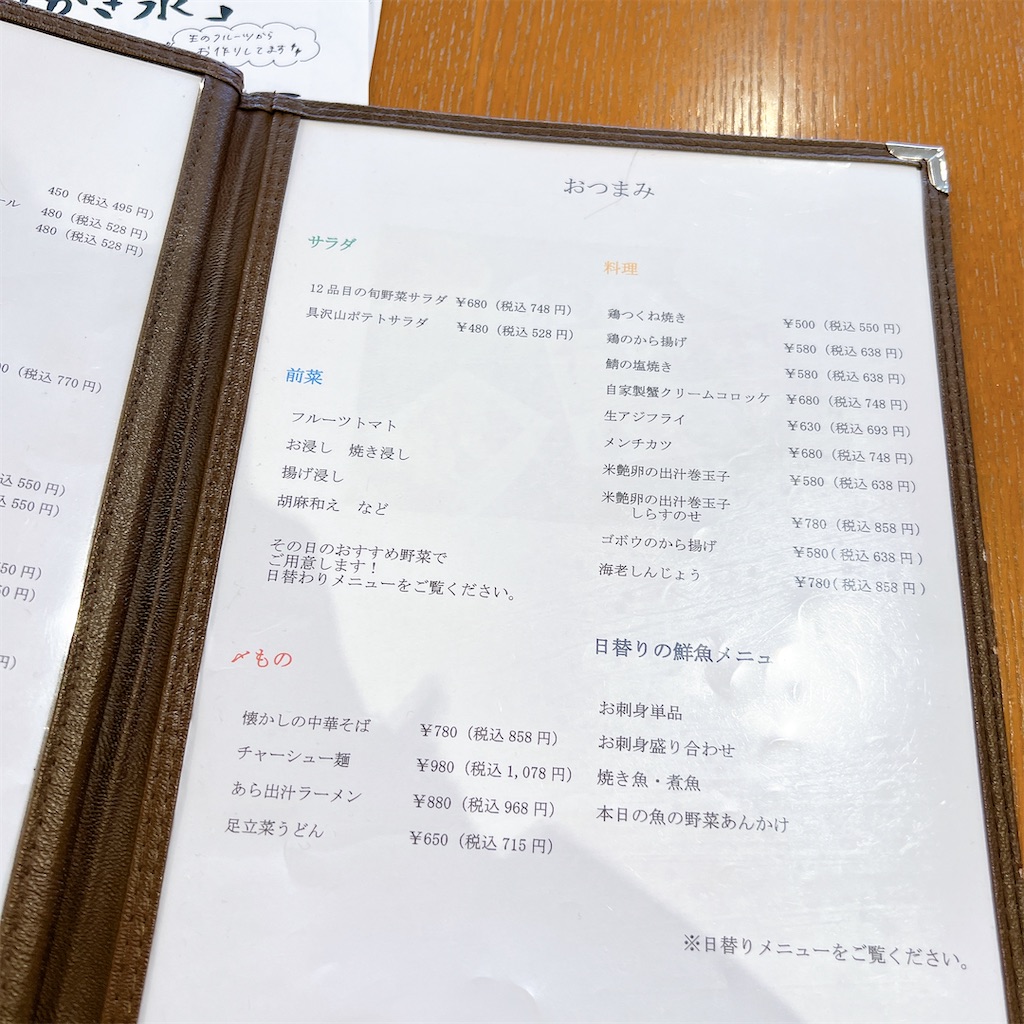 かき氷」
生のフルーツから
お作りしてます
450（税込 495 円）
ール 480（税込 528 円）
480（税込 528 円）
（税込 770 円）
税込 550 円）
税込 550 円）
円）
円）
円）
おつまみ
サラダ
12 品目の旬野菜サラダ ￥680（税込 748 円）
具沢山ポテトサラダ ￥480（税込 528 円）
前菜
フルーツトマト
お浸し 焼き浸し
揚げ浸し
胡麻和え など
その日のおすすめ野菜で
ご用意します！
日替わりメニューをご覧ください。
〆もの
懐かしの中華そば ￥780（税込 858 円）
チャーシュー麺 ￥980（税込 1,078 円）
あら出汁ラーメン ￥880（税込 968 円）
足立菜うどん ￥650（税込 715 円）
料理
鶏つくね焼き ￥500（税込 550 円）
鶏のから揚げ ￥580（税込 638 円）
鯖の塩焼き ￥580（税込 638 円）
自家製蟹クリームコロッケ ￥680（税込 748 円）
生アジフライ ￥630（税込 693 円）
メンチカツ ￥680（税込 748 円）
米艶卵の出汁巻玉子 ￥580（税込 638 円）
米艶卵の出汁巻玉子
しらすのせ ￥780（税込 858 円）
ゴボウのから揚げ ￥580( 税込 638 円 )
海老しんじょう ￥780( 税込 858 円 )
日替りの鮮魚メニュ
お刺身単品
お刺身盛り合わせ
焼き魚・煮魚
本日の魚の野菜あんかけ
※日替りメニューをご覧ください。